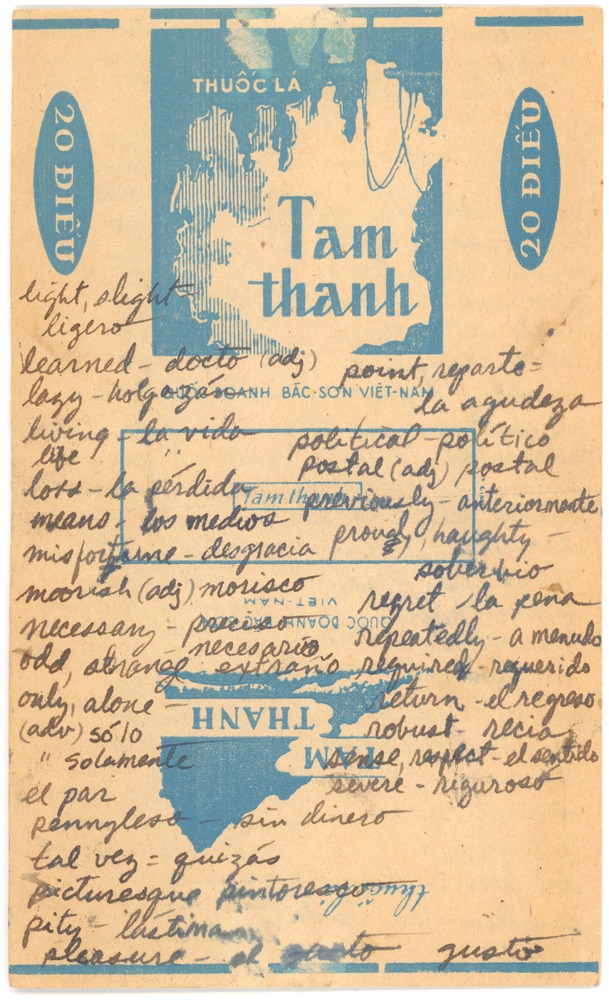 THUỐC LÁ
20 ĐIẾU
20 ĐIẾU
Tam
thanh
QUỐC DOANH BẮC-SƠN VIỆT-NAM
Tam thanh
QUỐC DOANH BẮC SƠN
VIỆT-NAM
TAM
THANH
thuốc lá
light, slight -
ligero
learned - docto (adj)
lazy - holgazán
living - la vida
life "
loss - la pérdida
means - los medios
misfortune - desgracia
moorish (adj) morisco
necessary - preciso
necesario
odd, strange extraño
only, alone -
(adv) sólo
" solamente
el par
pennyless - sin dinero
tal vez = quizás
picturesque pintoresco
pity - lástima
pleasure - el gusto gusto
point, reparte =
la agudeza
political - político
postal (adj) postal
previously - anteriormente
proud, haughty -
soberbio
regret - la pena
repeatedly - a menudo
required - requerido
return - el regreso
robust - recia
sense, respect - el sentido
severe - riguroso